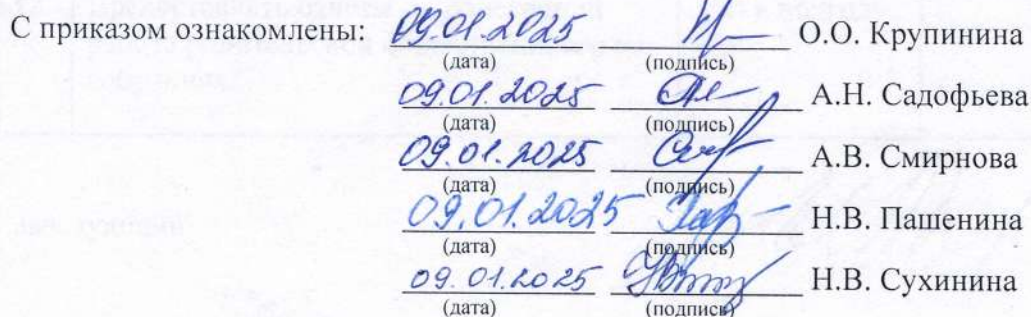 С приказом ознакомлены: 09.01.2025 О.О. Крупинина
(дата) (подпись)
09.01.2025 А.Н. Садофьева
(дата) (подпись)
09.01.2025 А.В. Смирнова
(дата) (подпись)
09.01.2025 Н.В. Пашенина
(дата) (подпись)
09.01.2025 Н.В. Сухинина
(дата) (подпись)